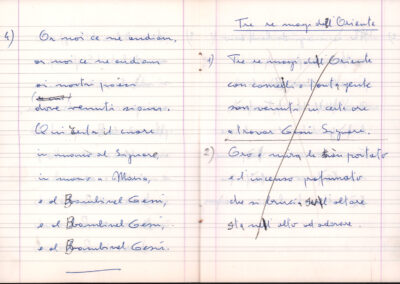 4) Or noi ce ne andiam,
or noi ce ne andiam
ai nostri paesi
dove venuti siam.
Qui resta il cuore
in mano al Signore,
in mano a Maria,
e al Bambinel Gesù,
e al Bambinel Gesù,
e al Bambinel Gesù.
Tre re magi dell'Oriente
1) Tre re magi dell'Oriente
con cammelli e tanta gente
son venuti in certe ore
a trovar Gesù Signore.
2) Oro e mirra le han portato
e l'incenso profumato
che si brucia sull'altare
sta nell'alto ad adorare.